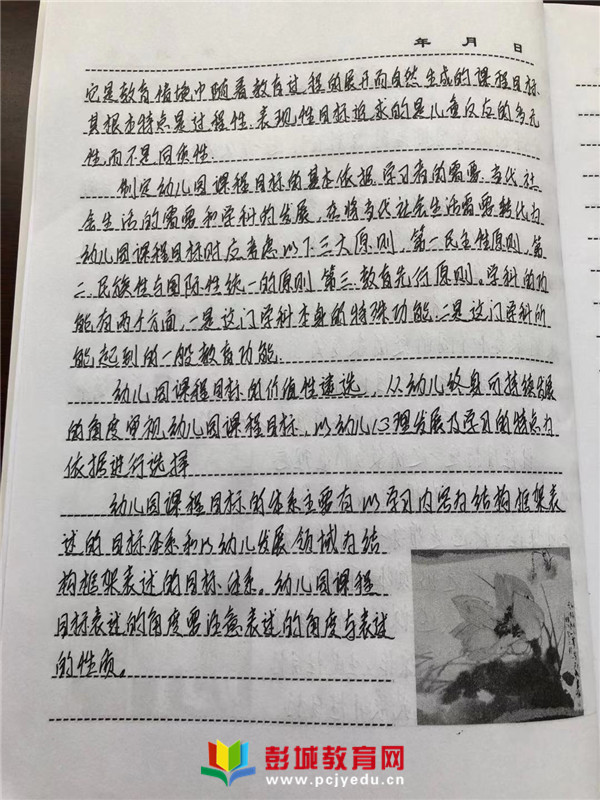 年 月 日
它是教育情境中随着教育过程的展开而自然生成的课程目标
其根本特点是过程性.表现性目标追求的是儿童反应的多元
性而不是同质性.
制定幼儿园课程目标的基本依据.学习者的需要.当代社
会生活的需要和学科的发展,在将当代社会生活需要转化为
幼儿园课程目标时应考虑以下三大原则,第一民主性原则,第
二.民族性与国际性统一的原则.第三.教育先行原则。学科的功
能有两个方面,一是这门学科本身的特殊功能;二是这门学科所
能起到的一般教育功能.
幼儿园课程目标的价值性遴选,从幼儿终身可持续发展
的角度审视幼儿园课程目标,以幼儿心理发展及学习的特点为
依据进行选择
幼儿园课程目标的体系主要有以学习内容为结构框架表
述的目标体系和以幼儿发展领域为结
构框架表述的目标体系。幼儿园课程
目标表述的角度要注意表述的角度与表述
的性质。
彭城教育网
www.pcjyedu.cn